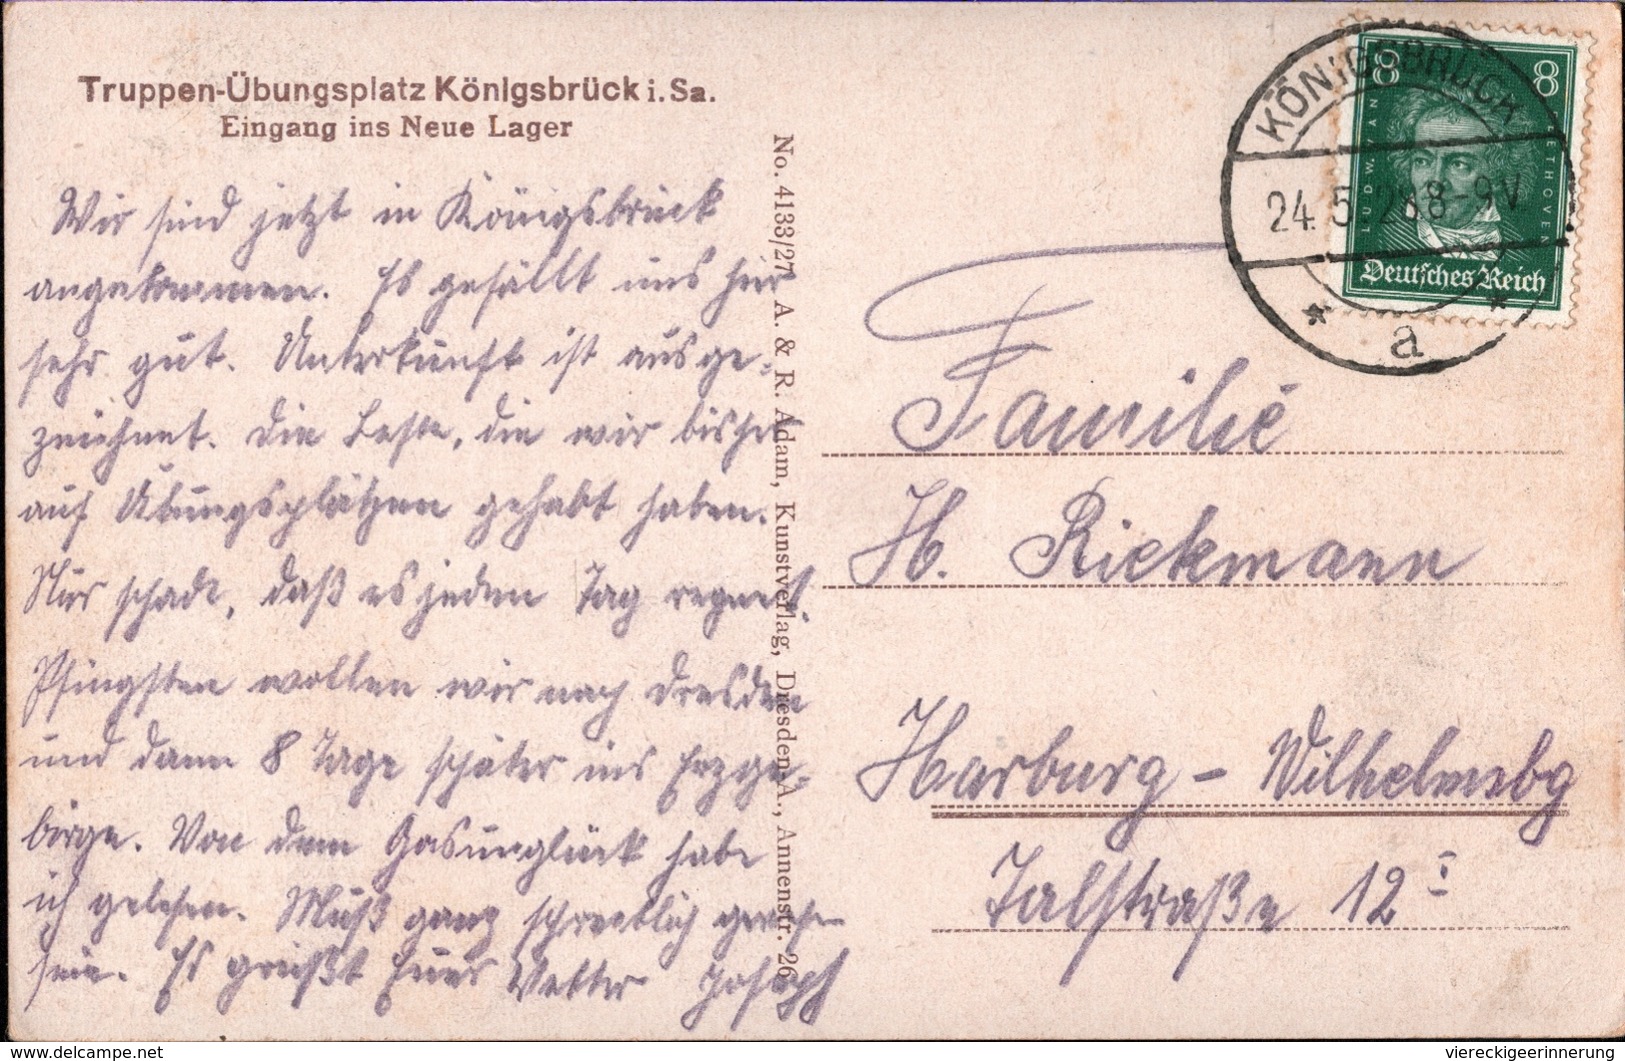 Truppen-Übungsplatz Königsbrück i. Sa.
Eingang ins Neue Lager
Wir sind jetzt in Königsbrück
angekommen. Es gefällt uns hier
sehr gut. Unterkunft ist ausge-
zeichnet. Die beste, die wir bisher
auf Übungsplätzen gehabt haben.
Nur schade, daß es jeden Tag regnet.
Pfingsten wollen wir nach Dresden
und dann 8 Tage später ins Erzge-
birge. Von dem Gasunglück habe
ich gelesen. Muß ganz schrecklich gewesen
sein. Es grüßt Euer Vetter Joseph
No. 4133/27 A. & R. Adam, Kunstverlag, Dresden-A., Annenstr. 26
KÖNIGSBRÜCK
24.5.28 8-9V
* a *
8 8
LUDW. VAN BEETHOVEN
Deutsches Reich
Familie
H. Rieckmann
Harburg - Wilhelmsbg
Talstraße 12 I
viereckigeerinnerung
Delcampe.net